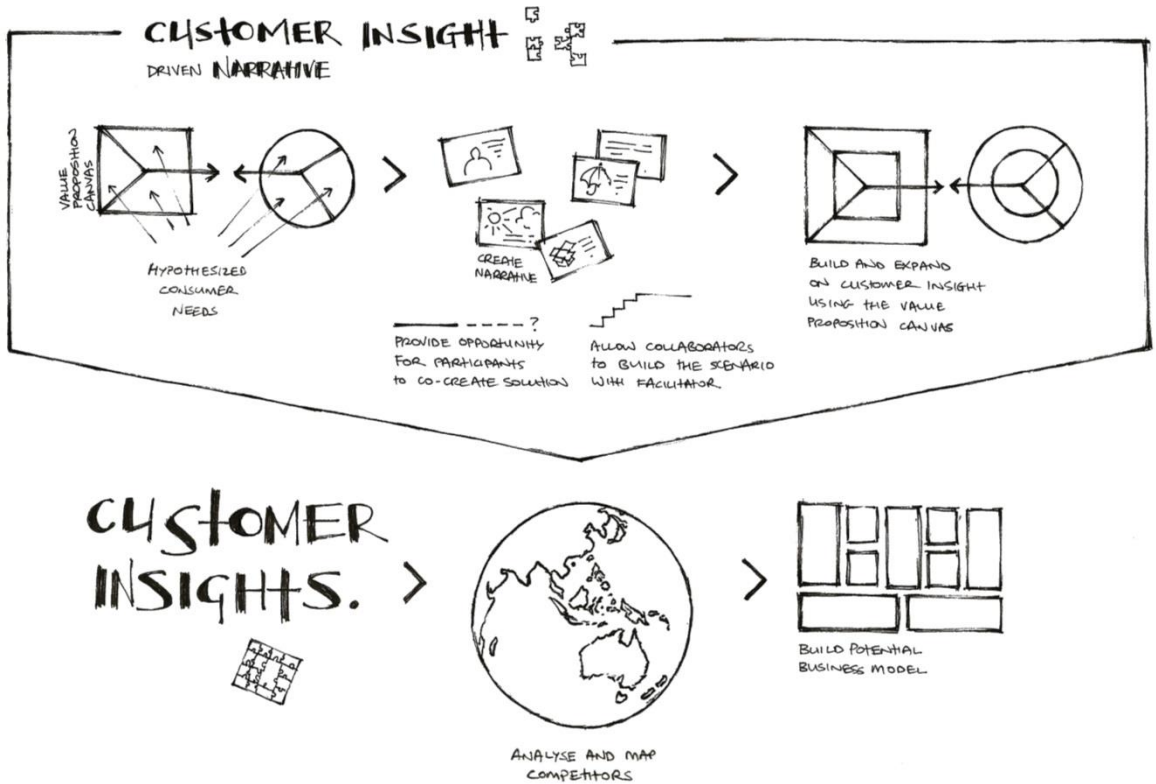 CUSTOMER INSIGHT
DRIVEN NARRATIVE
VALUE
PROPOSITION
CANVAS
HYPOTHESIZED
CONSUMER
NEEDS
CREATE
NARRATIVE
?
PROVIDE OPPORTUNITY
FOR PARTICIPANTS
to CO-CREATE SOLUTION
ALLOW COLLABORATORS
to BUILD THE SCENARIO
WITH FACILITATOR
BUILD AND EXPAND
ON CUSTOMER INSIGHT
USING THE VALUE
PROPOSITION CANVAS
CUSTOMER
INSIGHTS.
ANALYSE AND MAP
COMPETITORS
BUILD POTENTIAL
BUSINESS MODEL